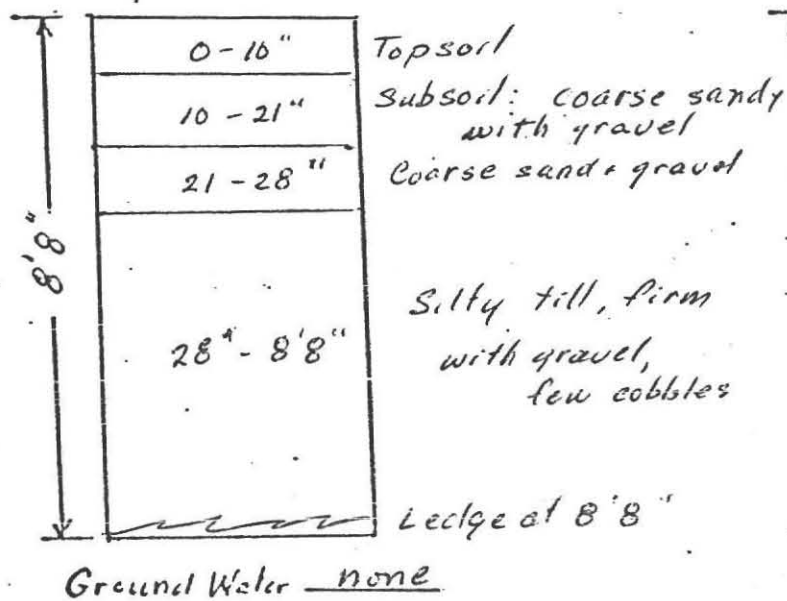 0-10" Topsoil
10-21" Subsoil: coarse sandy
with gravel
21-28" Coarse sand + gravel
8'8"
28"-8'8" Silty till, firm
with gravel,
few cobbles
Ledge at 8'8"
Ground Water none